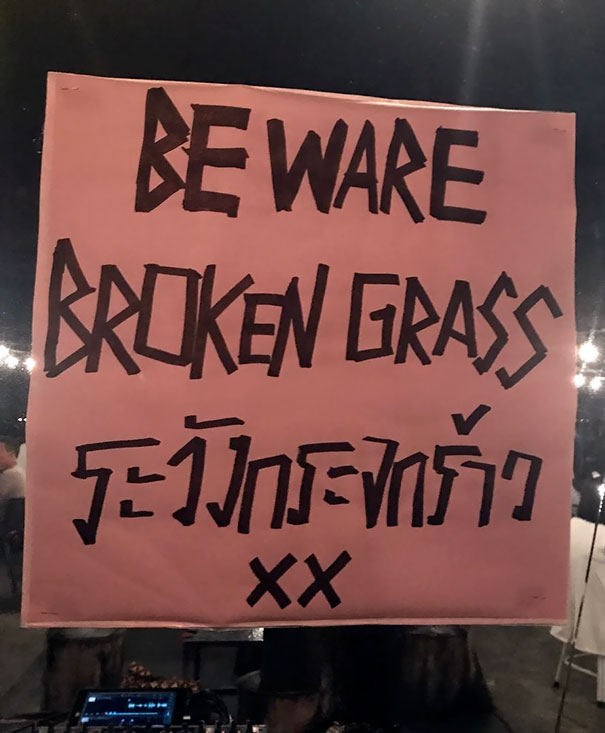 BE WARE
BROKEN GRASS
ระวังกระจกร้าว
xx